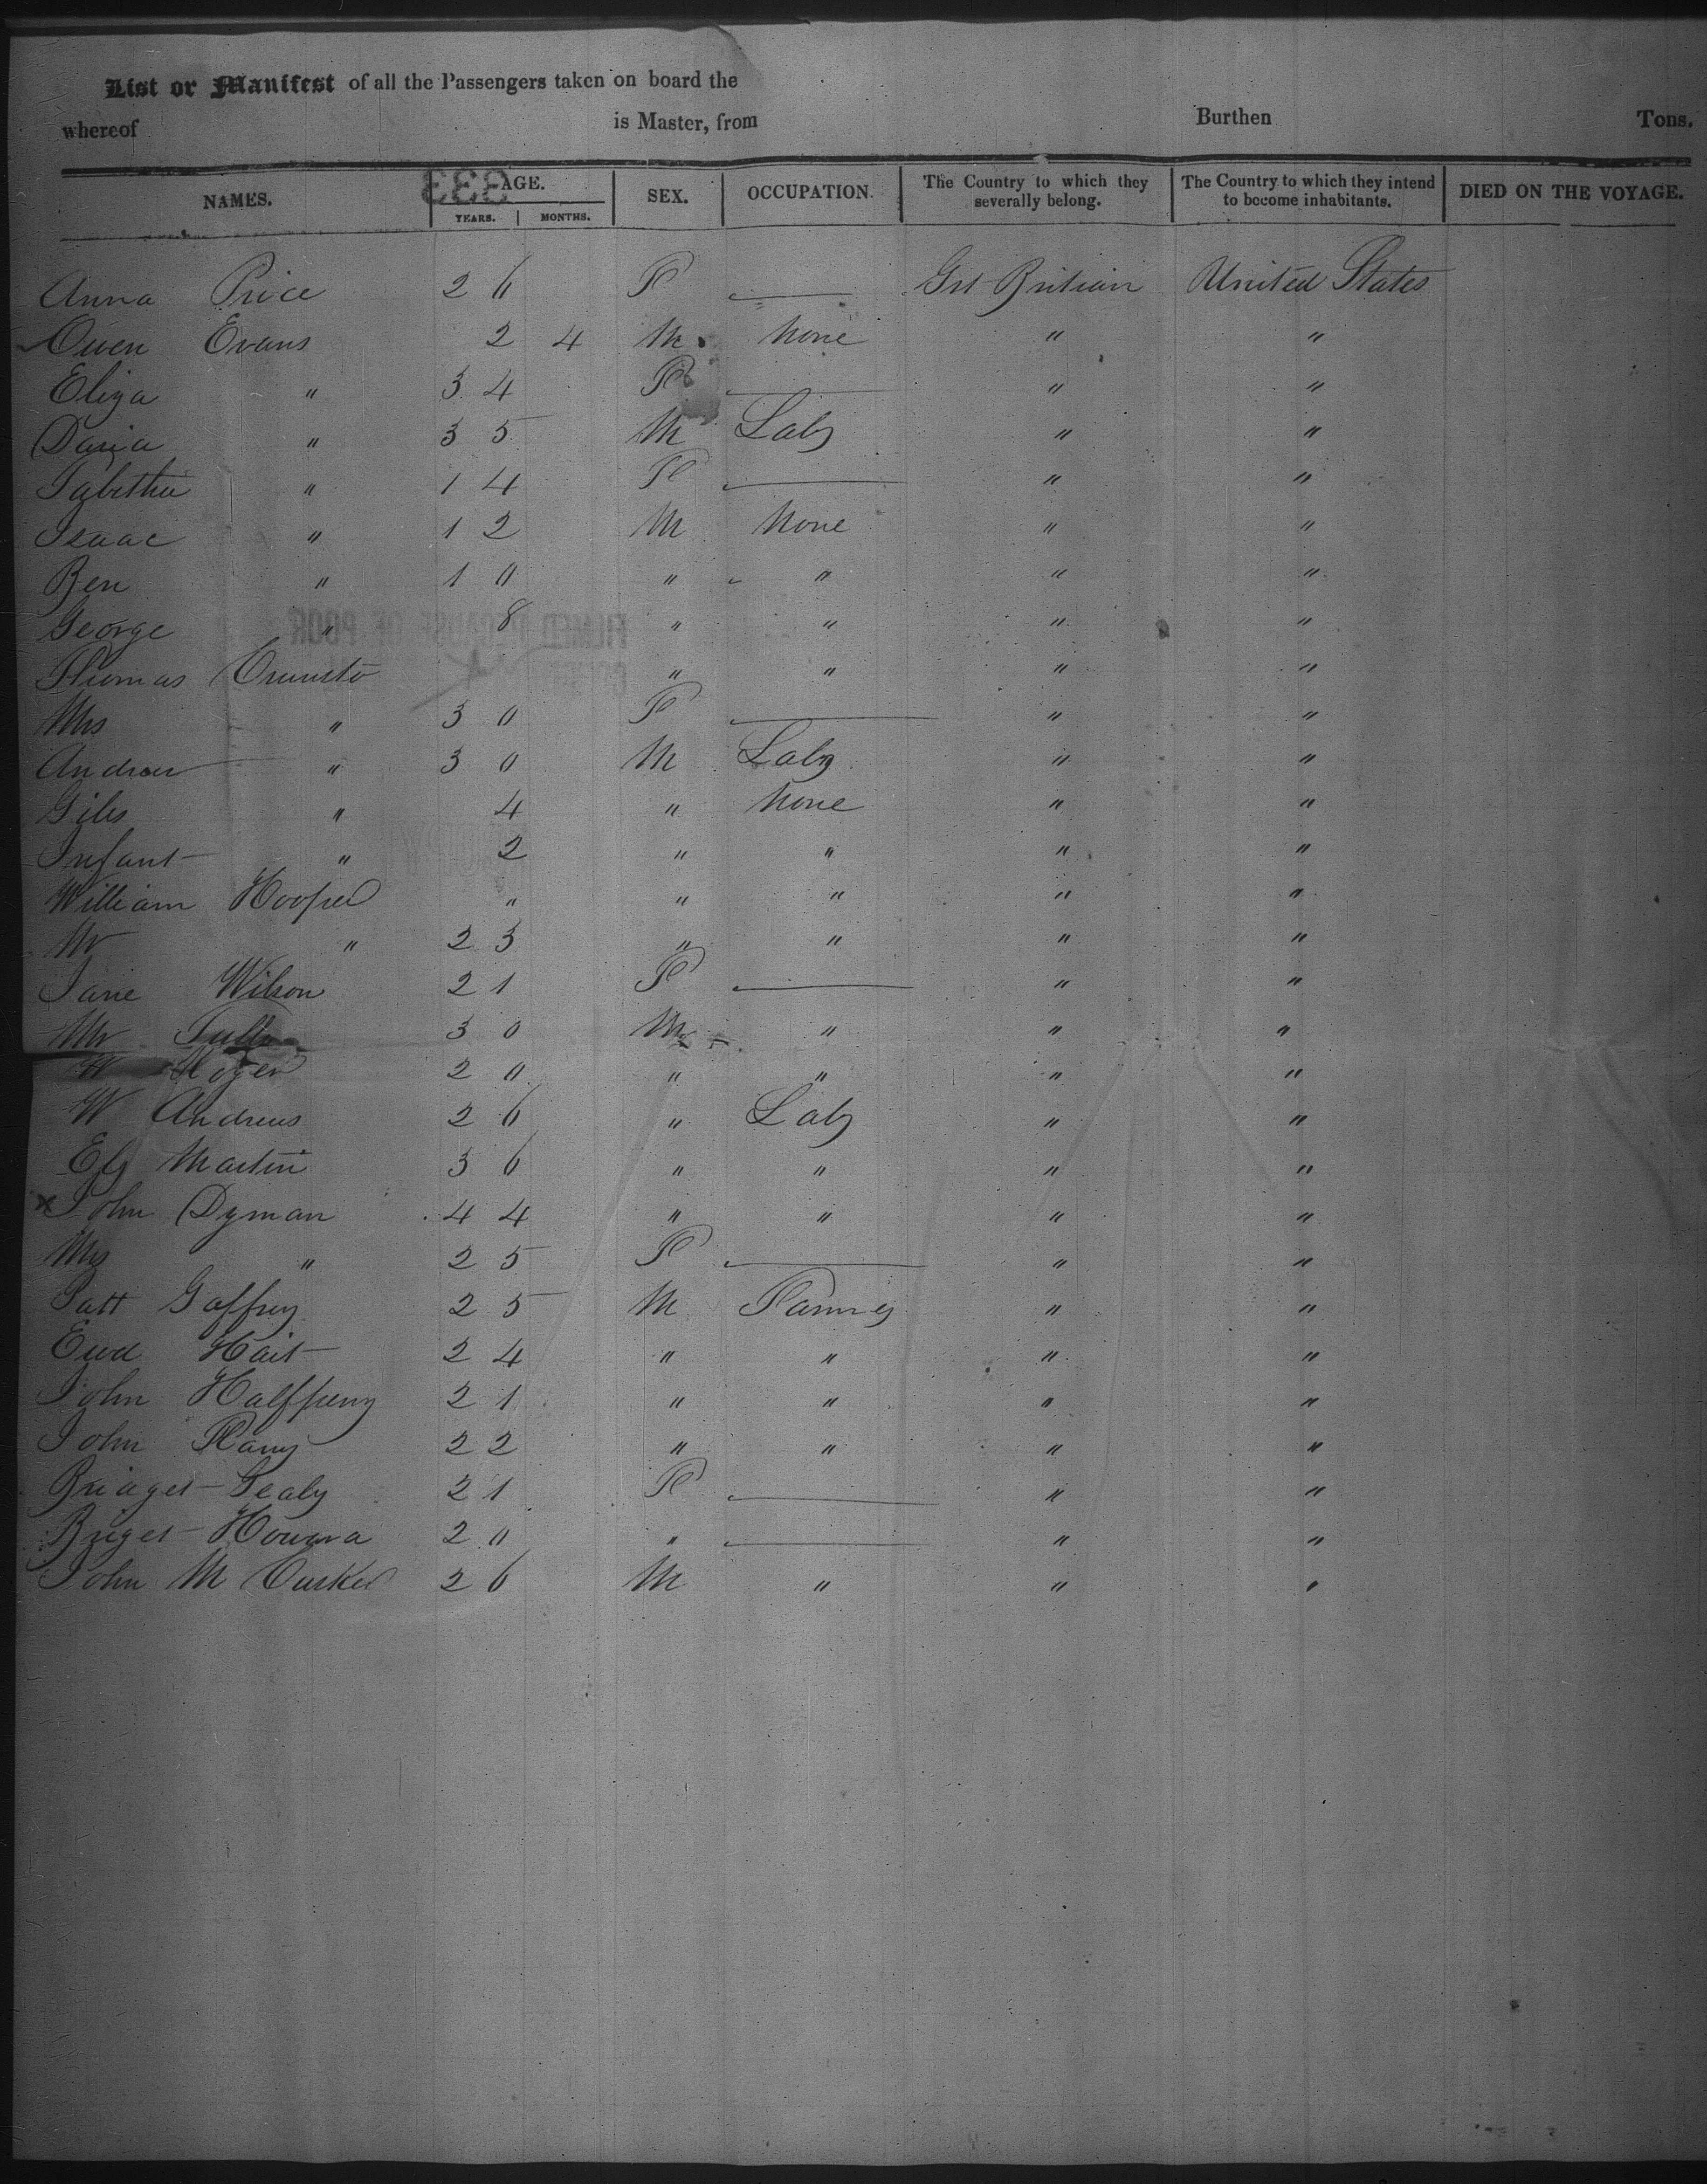 List or Manifest of all the Passengers taken on board the
whereof is Master, from Burthen Tons.
NAMES. AGE. YEARS. MONTHS. SEX. OCCUPATION. The Country to which they severally belong. The Country to which they intend to become inhabitants. DIED ON THE VOYAGE.
333
Anna Price 26 F — Grt Britian United States
Owen Evans 2 4 M None " "
Eliza " 34 F — " "
David " 35 M Labr " "
Tabitha " 14 F — " "
Isaac " 12 M None " "
Ben " 10 " " " "
George " 8 " " " "
FILMED BECAUSE OF POOR
Thomas " " " "
Mrs " 30 F — " "
Andrew " 30 M Labr " "
Giles " 4 " None " "
Infant " 2 " " " "
William Hooper " " " " "
Mr " 23 " " " "
Jane Wilson 21 F — " "
Mr 30 M " " "
W 20 " " " "
W Andrews 26 " Labr " "
Martin 36 " " " "
x John Dyman 44 " " " "
Mrs " 25 F — " "
Patt Gaffrey 25 M Farmer " "
Ewd Hait 24 " " " "
John Halfpeny 21 " " " "
John 22 " " " "
Bridget 21 F — " "
Briget Howard 20 " — " "
John M Cusker 26 M " " "